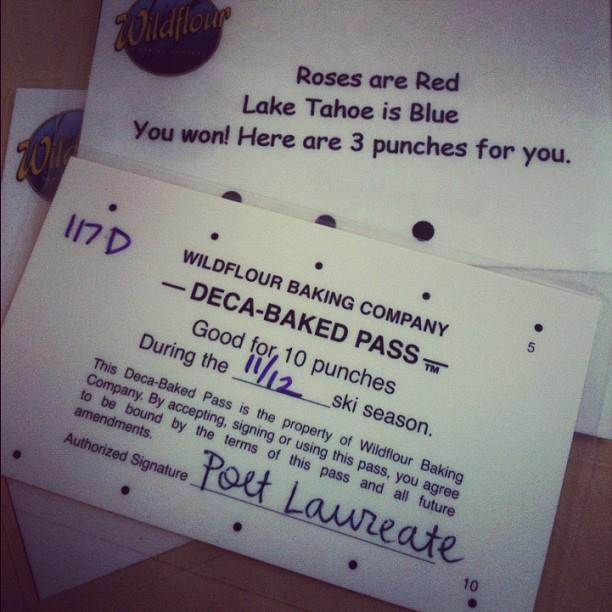 Wildflour
BAKING COMPANY
Roses are Red
Lake Tahoe is Blue
You won! Here are 3 punches for you.
Wild
117D
WILDFLOUR BAKING COMPANY
— DECA-BAKED PASS —™
Good for 10 punches
During the 11/12 ski season.
This Deca-Baked Pass is the property of Wildflour Baking
Company. By accepting, signing or using this pass, you agree
to be bound by the terms of this pass and all future
amendments.
Authorized Signature Poet Laureate
5
10